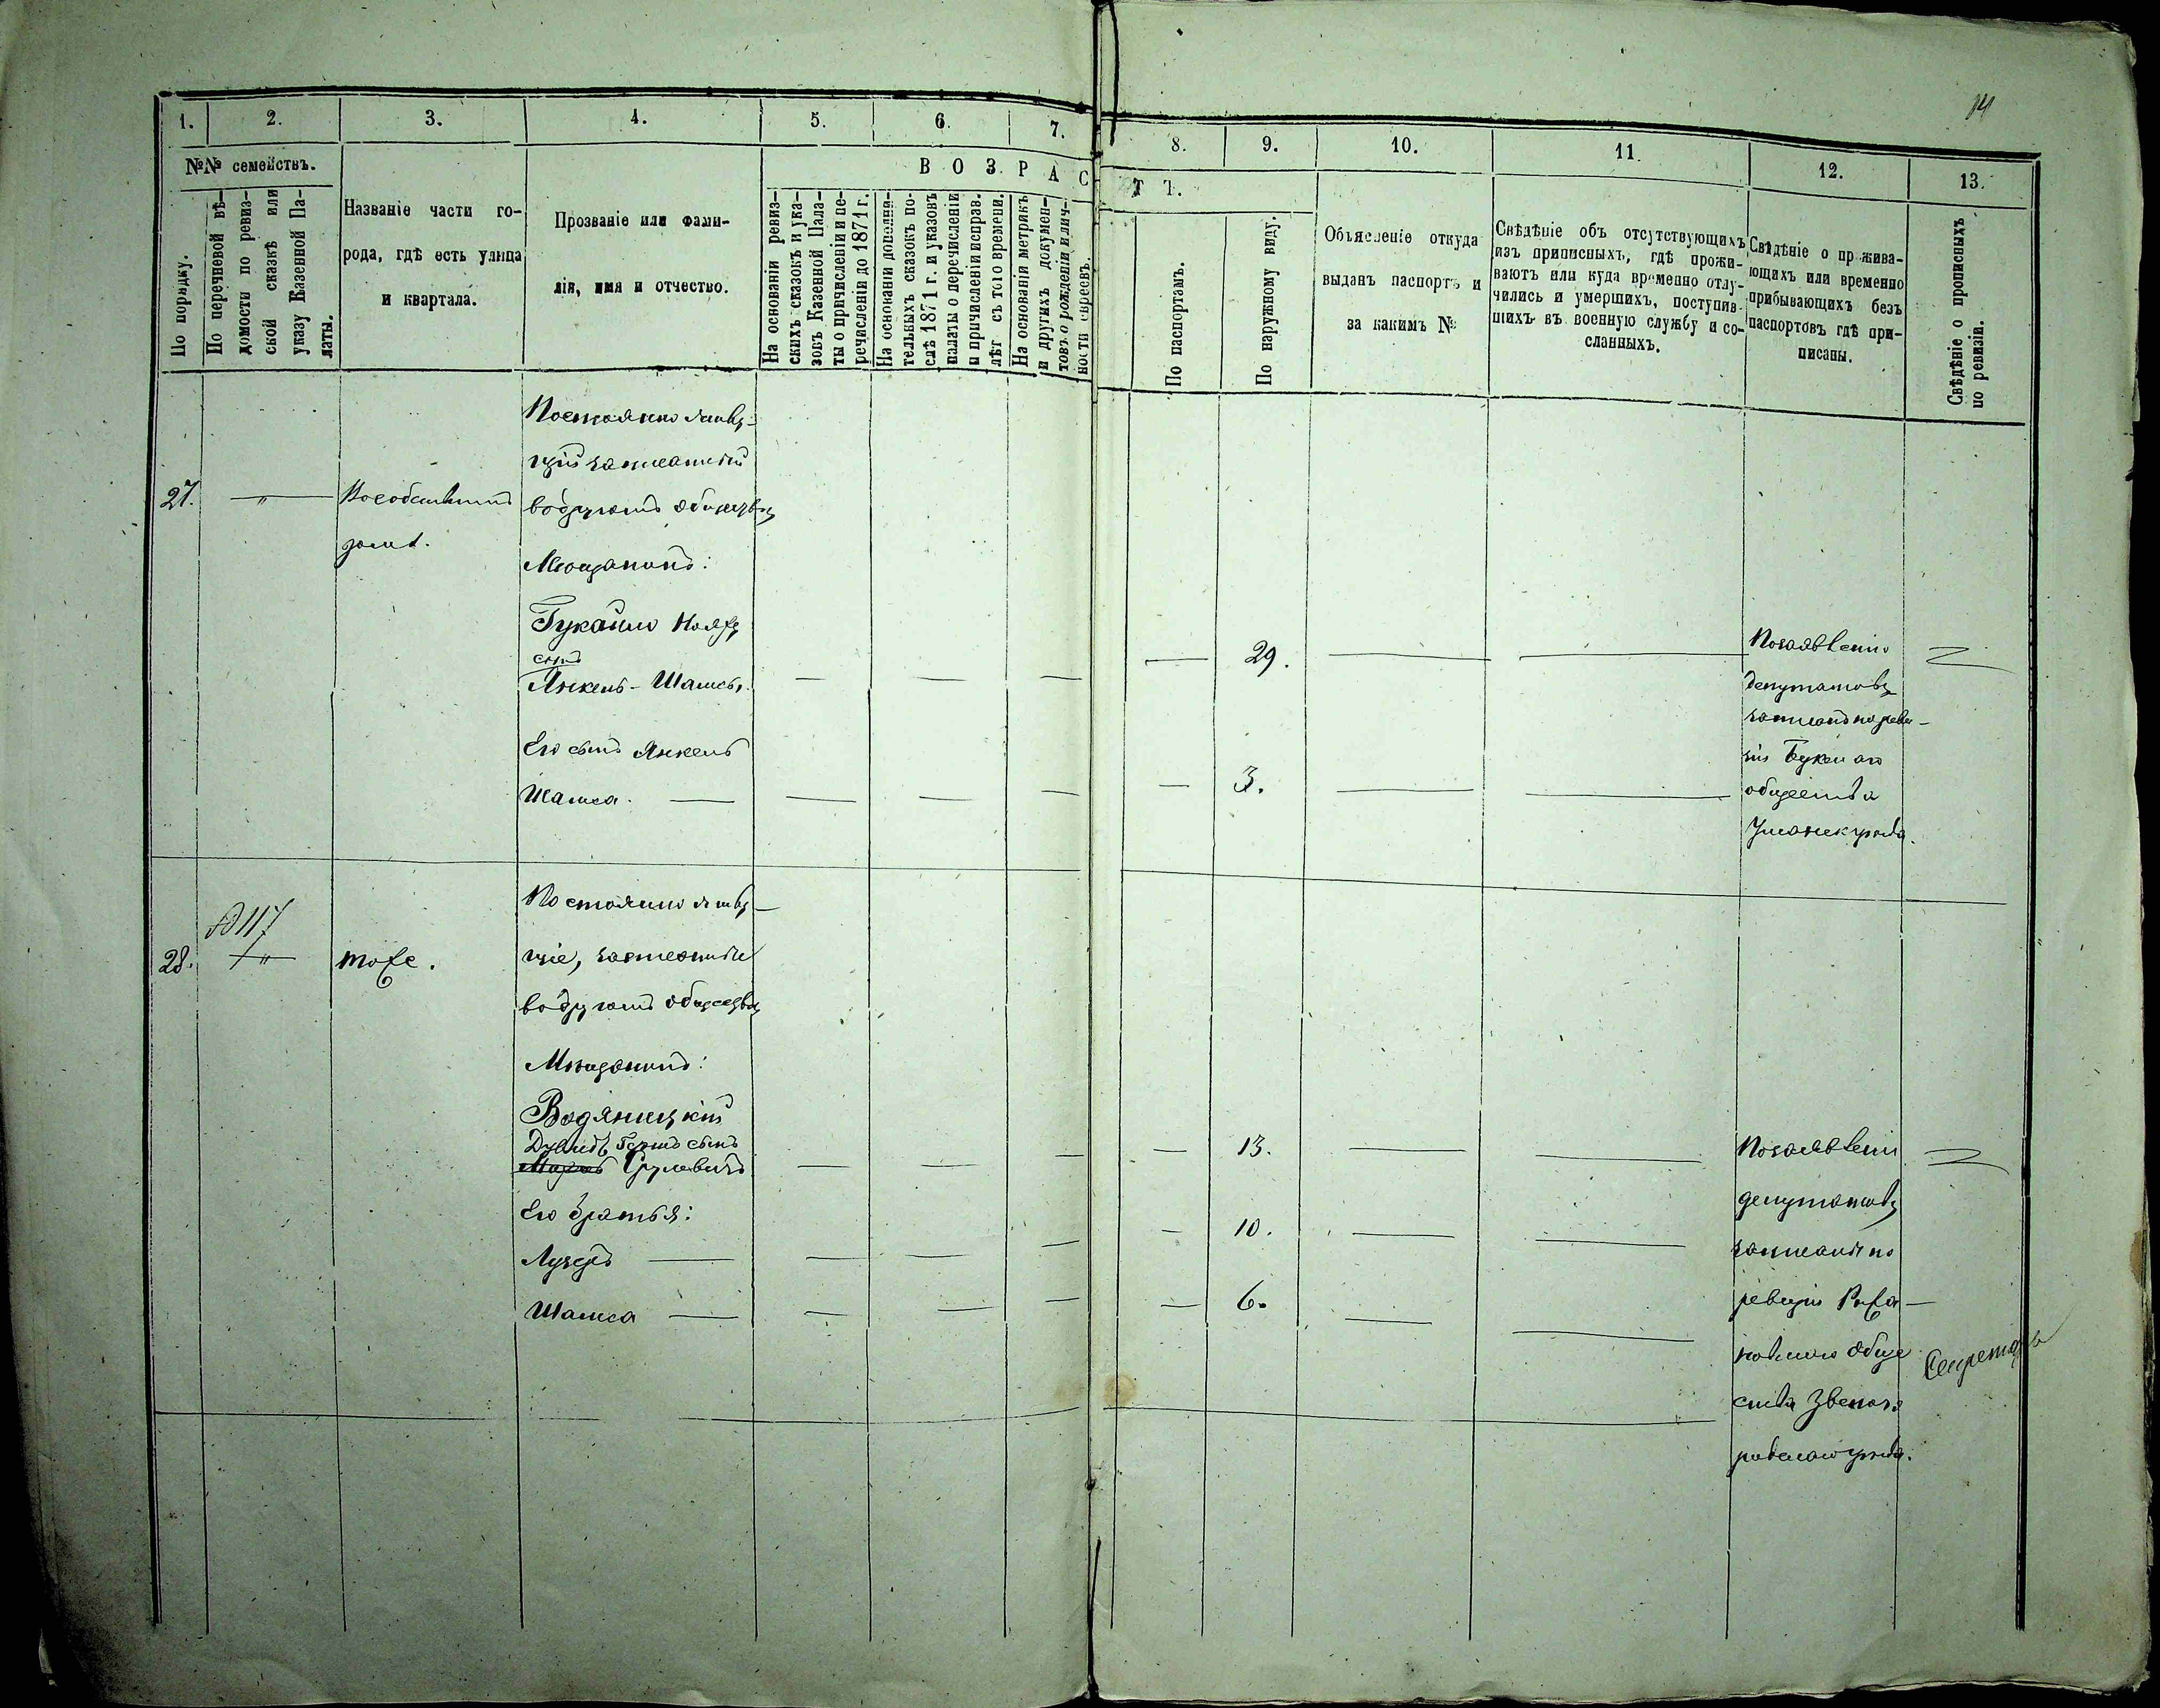 14
1.
2.
3.
4.
5.
6.
7.
8.
9.
10.
11.
12.
13.
№№ семействъ.
По порядку.
По перечневой вѣ-
домости по ревиз-
ской сказкѣ или
указу Казенной Па-
латы.
Названіе части го-
рода, гдѣ есть улица
и квартала.
Прозваніе или фами-
лія, имя и отчество.
ВОЗРАС
ТТ.
На основаніи ревиз-
скихъ сказокъ и ука-
зовъ Казенной Пала-
ты о причисленіи и пе-
речисленіи до 1871 г.
На основаніи дополни-
тельныхъ сказокъ по-
слѣ 1871 г. и указовъ
палаты о перечисленіи
и причисленіи исправ.
лѣт съ того времени.
На основаніи метрикъ
и другихъ докумен-
товъ о рожденіи и лич-
ности евреевъ.
По паспортамъ.
По наружному виду.
Объясненіе откуда
выданъ паспортъ и
за какимъ №
Свѣдѣніе объ отсутствующихъ
изъ приписныхъ, гдѣ прожи-
ваютъ или куда временно отлу-
чились и умершихъ, поступив-
шихъ въ военную службу и со-
сланныхъ.
Свѣдѣніе о прожива-
ющихъ или временно
прибывающихъ безъ
паспортовъ гдѣ при-
писаны.
Свѣдѣніе о прописныхъ
по ревизіи.
27.
"
домѣ.
Постоянно живу-
щій записанный
въ другомъ обществѣ
Мѣщанинъ:
сынъ
Янкель-Шамсъ
29.
Его сынъ Янкель
Шамса.
3.
По заявленію
депутатовъ
записанъ по реви-
зіи
общества
Уманск уѣзда.
28.
117
"
тоже.
Постоянно живу-
щіе, записанные
въ другомъ обществѣ
Мѣщанинъ:
Водяницкій
Гершъ сынъ
Срулевичъ
13.
Его братья:
10.
Шамса
6.
По заявленію
депутатовъ
записаны по
ревизіи Рыжа-
новскаго обще
ства Звениго
родскаго уѣзда.
Секретарь